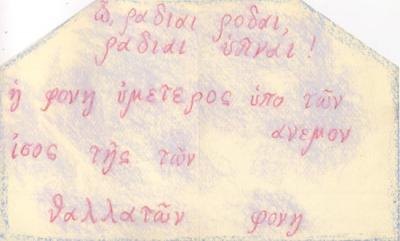 ὦ, ραδιαι ροδαι,
ραδιαι ὑπναι!
ἡ φονη ὑμετερος ὑπο τῶν
ανεμον
ἰσος τῆς τῶν
θαλλατῶν φονη